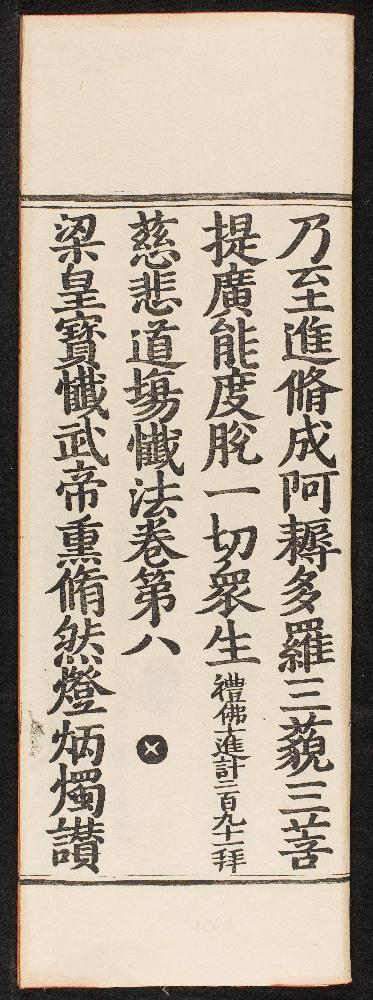 乃至進脩成阿耨多羅三藐三菩
提廣能度脫一切衆生禮佛士進計二百九十一拜
慈悲道場懺法卷第八
梁皇寶懺武帝熏脩然燈炳燭讃